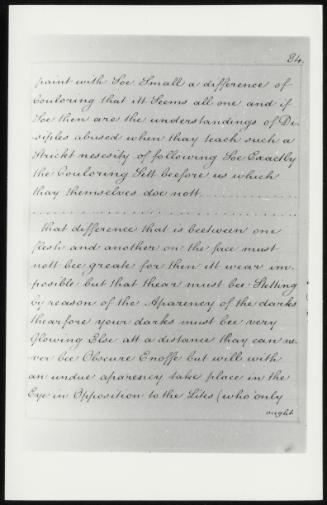 94.
paint with Soe Small a difference of
Couloring that itt Seems all one and if
Soe then are the understandings of Di=
siples abused when thay teach such a
Strickt nesesity of following Soe Exactly
the Couloring Sett beefore us which
thay themselves doe nott. . . . . . . . . . . . . .
. . . . . . . . . . . . . . . . . . . . . . . . . . . . . .
that difference that is beetween one
flesh and another on the face must
nott bee greate for then itt wear im=
posible but that thear must bee Stetting
by reason of the Aparency of the darks
thearfore your darks must bee very
Glowing Else att a distance thay can ne=
ver bee Obscure Enoffe but will with
an undue aparency take place in the
Eye in Opposition to the Lites (who only
ought